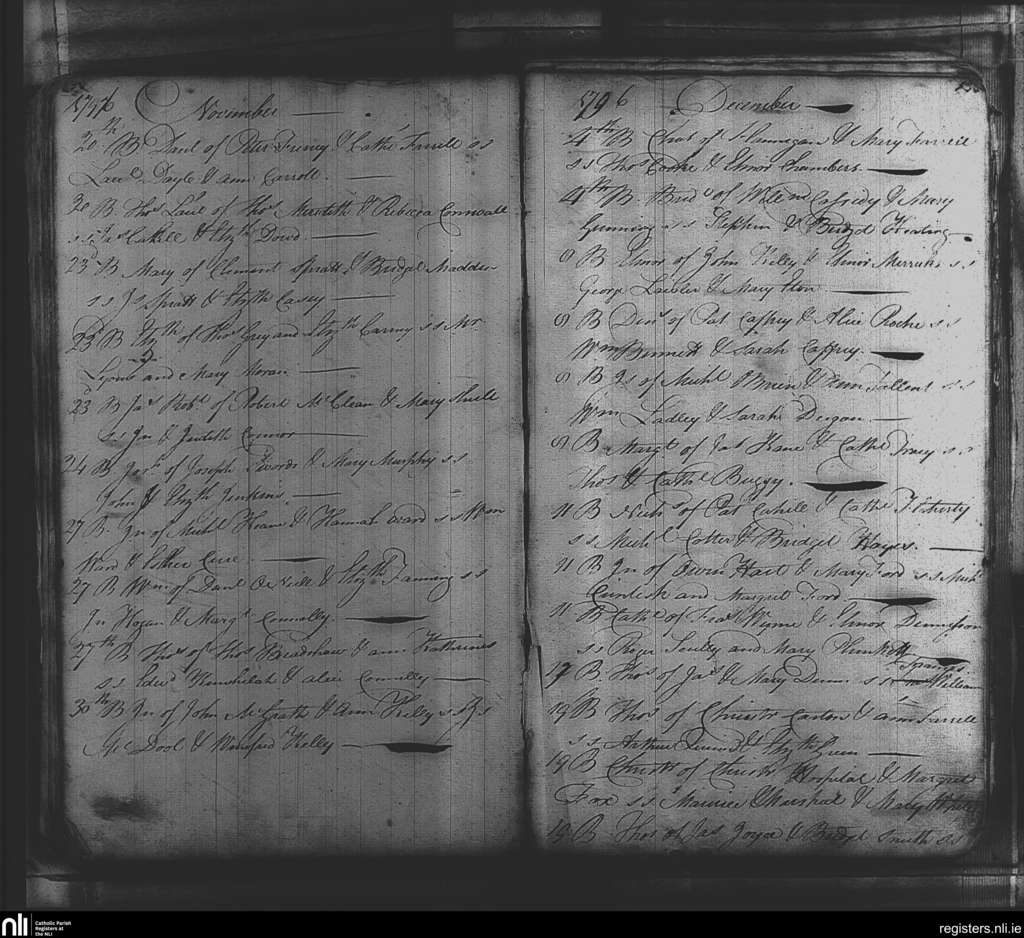 1796 November
20th B Danl of Peter Freney & Cathe Farrell ss
Laue Doyle & ann Carroll.
20 B Thos Laue of Thos Meredith & Rebecca Cornwall
ss Jas Cahill & Elizth Dowd
23d B Mary of Clement Spratt & Bridget Madden
ss Js Spratt & Elizth Casey
23d B Elizth of Thos Grey and Elizth Carney ss Mr
Lyons and Mary Moran
23d B Jas Robt of Robert McClean & Mary
ss Jn & Judith Connor
24 B Josh of Joseph Swords & Mary Murphy ss
John & Elizth Jenkins
27 B Jn of Michl Keane & Hannah Ward ss Wm
Ward & Esther
27 B Wm of Danl O Neill & Elizth Fanning ss
Jn Hogan & Margt Connolly
27th B Thos of Thos Bradshaw & ann Katherines
ss Edwd & alice Connolly
30th B Jn of John McGrath & Ann Kelly ss Js
Mc Dool & Winifred Kelly
1796 December
4th B Christ of Flannigan & Mary Farrell
ss Thos Cooke & Elinor Chambers
4th B Bridt of Willm Cassedy & Mary
Gunning ss Stephen & Bridget Keating
8 B Elinor of John Kelley & Elinor ss
George Lawler & Mary
8 B Denis of Pat Caffrey & Alice Roche ss
Wm Bennett & Sarah Caffrey
8 B Js of Michl OBrien & Ann Tallent ss
Wm Lalley & Sarah Deegan
8 B Margt of Jas Kane & Cathe Tracy ss
Thos & Cathe Buggy.
11 B Nichs of Pat Cahill & Cathe Flaherty
ss Michl Cotter & Bridget Hayes.
11 B Jn of Owen Hart & Mary Ford ss Michl
and Margret Ford
11 B Cathe of Fras Wynne & Elinor Dennison
ss Roger and Mary Plunkett
17 B Thos of Jas & Mary Dunn ss Francis William
19 B Thos of Christr Carlon & ann Farrell
ss Arthur & Elizth Green
19 B Christr of Christr Hospital & Margret
Fox ss Maurice & Mary
19 B Thos of Jas Joyce & Bridget Smith ss
nli
Catholic Parish
Registers at
the NLI
registers.nli.ie